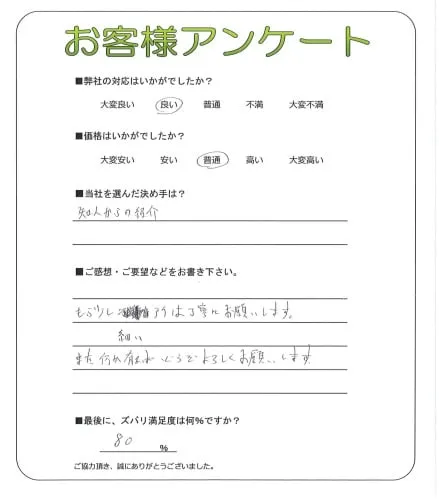 お客様アンケート
■弊社の対応はいかがでしたか？
大変良い 良い 普通 不満 大変不満
■価格はいかがでしたか？
大変安い 安い 普通 高い 大変高い
■当社を選んだ決め手は？
知人からの紹介
■ご感想・ご要望などをお書き下さい。
もう少し 所は丁寧にお願いします。
細い
また何か有れば よろしくお願いします
■最後に、ズバリ満足度は何％ですか？
80 ％
ご協力頂き、誠にありがとうございました。